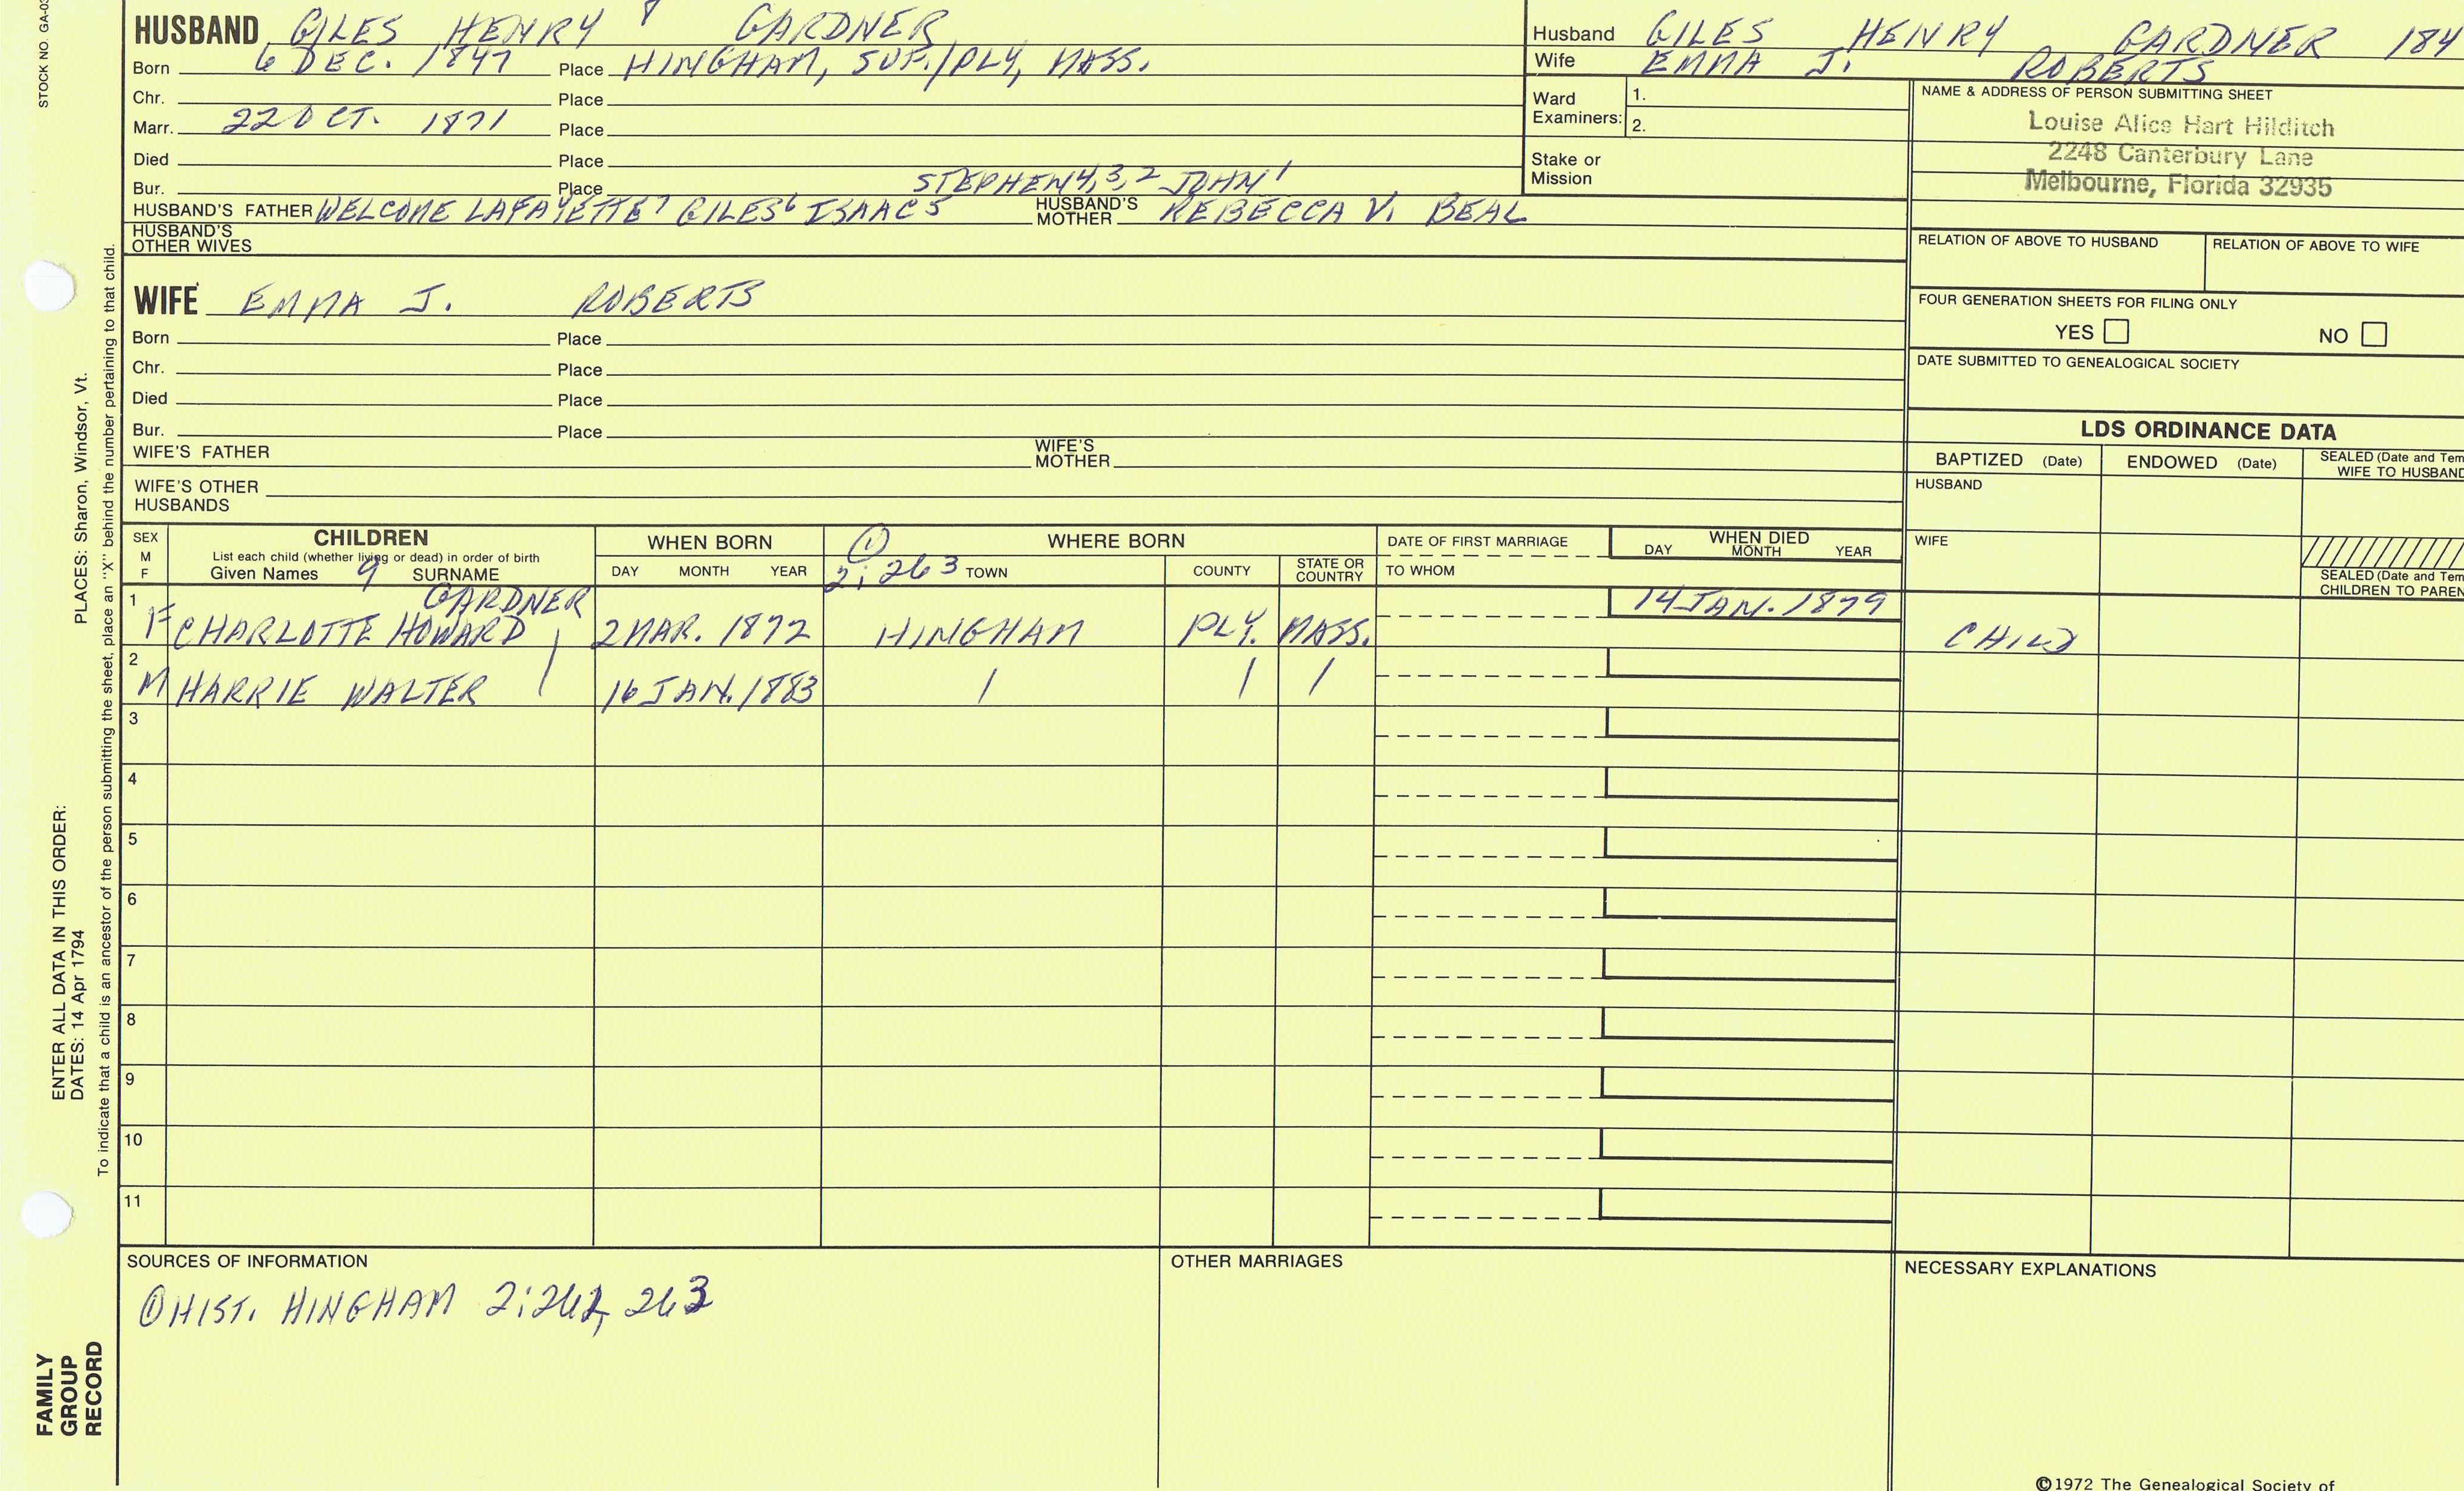 STOCK NO. GA-03
HUSBAND GILES HENRY 8 GARDNER
Born 6 DEC. 1847 Place HINGHAM, SUF./PLY, MASS.
Chr. Place
Marr. 22 OCT. 1871 Place
Died Place
Bur. Place STEPHEN 4,3,2 JOHN 1
HUSBAND'S FATHER WELCOME LAFAYETTE 7 GILES 6 ISAAC 5 HUSBAND'S MOTHER REBECCA V. BEAL
HUSBAND'S OTHER WIVES
WIFE EMMA J. ROBERTS
Born Place
Chr. Place
Died Place
Bur. Place
WIFE'S FATHER WIFE'S MOTHER
WIFE'S OTHER HUSBANDS
Husband GILES HENRY GARDNER 184
Wife EMMA J. ROBERTS
Ward Examiners: 1.
2.
Stake or Mission
NAME & ADDRESS OF PERSON SUBMITTING SHEET
Louise Alice Hart Hilditch
2248 Canterbury Lane
Melbourne, Florida 32935
RELATION OF ABOVE TO HUSBAND RELATION OF ABOVE TO WIFE
FOUR GENERATION SHEETS FOR FILING ONLY
YES NO
DATE SUBMITTED TO GENEALOGICAL SOCIETY
LDS ORDINANCE DATA
BAPTIZED (Date) ENDOWED (Date) SEALED (Date and Tem
WIFE TO HUSBAND
HUSBAND
WIFE
SEALED (Date and Tem
CHILDREN TO PAREN
SEX M F CHILDREN WHEN BORN ① WHERE BORN DATE OF FIRST MARRIAGE WHEN DIED
List each child (whether living or dead) in order of birth
Given Names 9 SURNAME DAY MONTH YEAR 2:263 TOWN COUNTY STATE OR COUNTRY TO WHOM DAY MONTH YEAR
GARDNER 14 JAN. 1879
1 F CHARLOTTE HOWARD / 2 MAR. 1872 HINGHAM PLY. MASS. CHILD
2 M HARRIE WALTER / 16 JAN. 1883 / / /
3
4
5
6
7
8
9
10
11
SOURCES OF INFORMATION
① HIST. HINGHAM 2:262, 263
OTHER MARRIAGES
NECESSARY EXPLANATIONS
©1972 The Genealogical Society of
PLACES: Sharon, Windsor, Vt.
To indicate that a child is an ancestor of the person submitting the sheet, place an "X" behind the number pertaining to that child.
ENTER ALL DATA IN THIS ORDER:
DATES: 14 Apr 1794
FAMILY
GROUP
RECORD